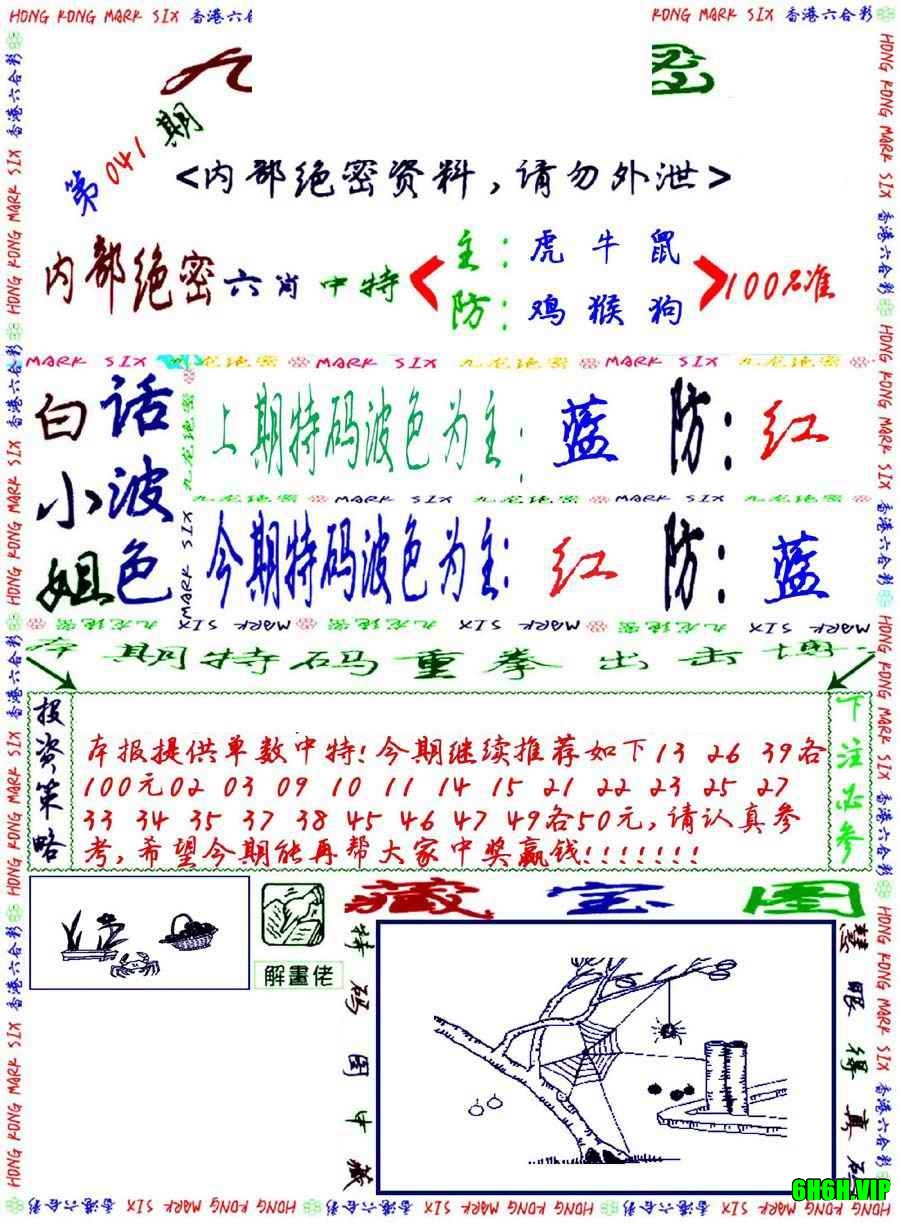 HONG KONG MARK SIX 香港六合彩
KONG MARK SIX 香港六合彩
九
密
第041期
<内部绝密资料，请勿外泄>
内部绝密六肖中特
主：虎 牛 鼠
防：鸡 猴 狗
100%准
MARK SIX 九龙绝密 MARK SIX 九龙绝密 MARK SIX 九龙绝密
白话
小波
姐色
上期特码波色为主：蓝 防：红
九龙绝密 MARK SIX 九龙绝密 MARK SIX 九龙绝密
今期特码波色为主：红 防：蓝
本期特码重拳出击博
投资策略
本报提供单数中特！今期继续推荐如下13 26 39各
100元02 03 09 10 11 14 15 21 22 23 25 27
33 34 35 37 38 45 46 47 49各50元，请认真参
考，希望今期能再帮大家中奖赢钱！！！！！！！
下注必参
解畫佬
藏宝图
特码图中藏
慧眼得真码
6H6H.VIP